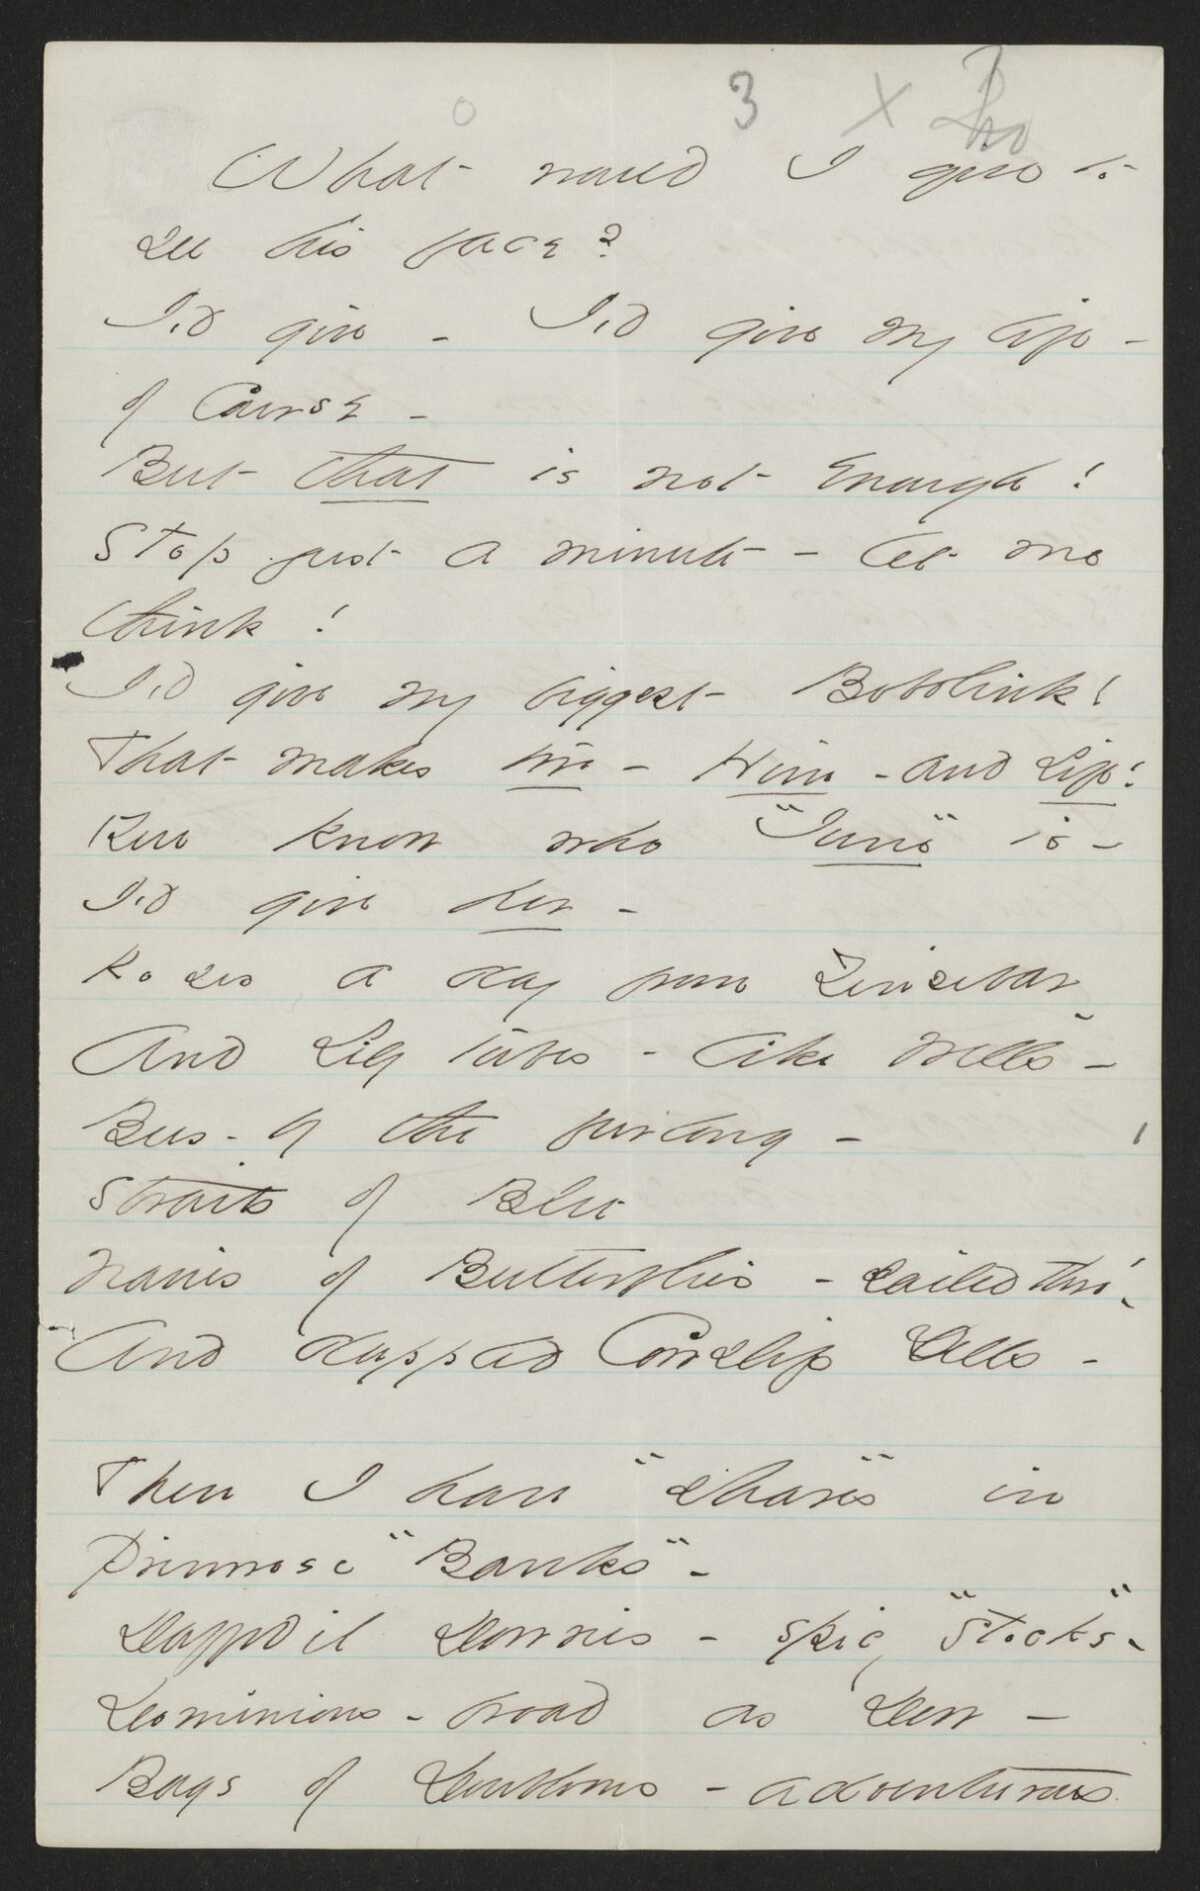 0 3 X
What would I give to
see his face?
I'd give - I'd give my life -
of Course -
But that is not Enough!
Stop just a minute - let me
think!
I'd give my biggest Bobolink!
That makes two - Him - and Life!
You know who "June" is -
I'd give her -
Roses a day from Zinzebar -
And Lily tubes - like Wells -
Bees - by the furlong -
Straits of Blue
Navies of Butterflies - sailed thro' -
And dappled Cowslip Dells -
Then I have "shares" in
Primrose "Banks" -
Daffodil Dowries - spicy "Stocks" -
Dominions - broad as Dew -
Bags of Doubloons - adventurous